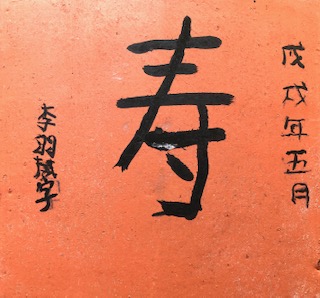 戊戌年五月
寿
李羽